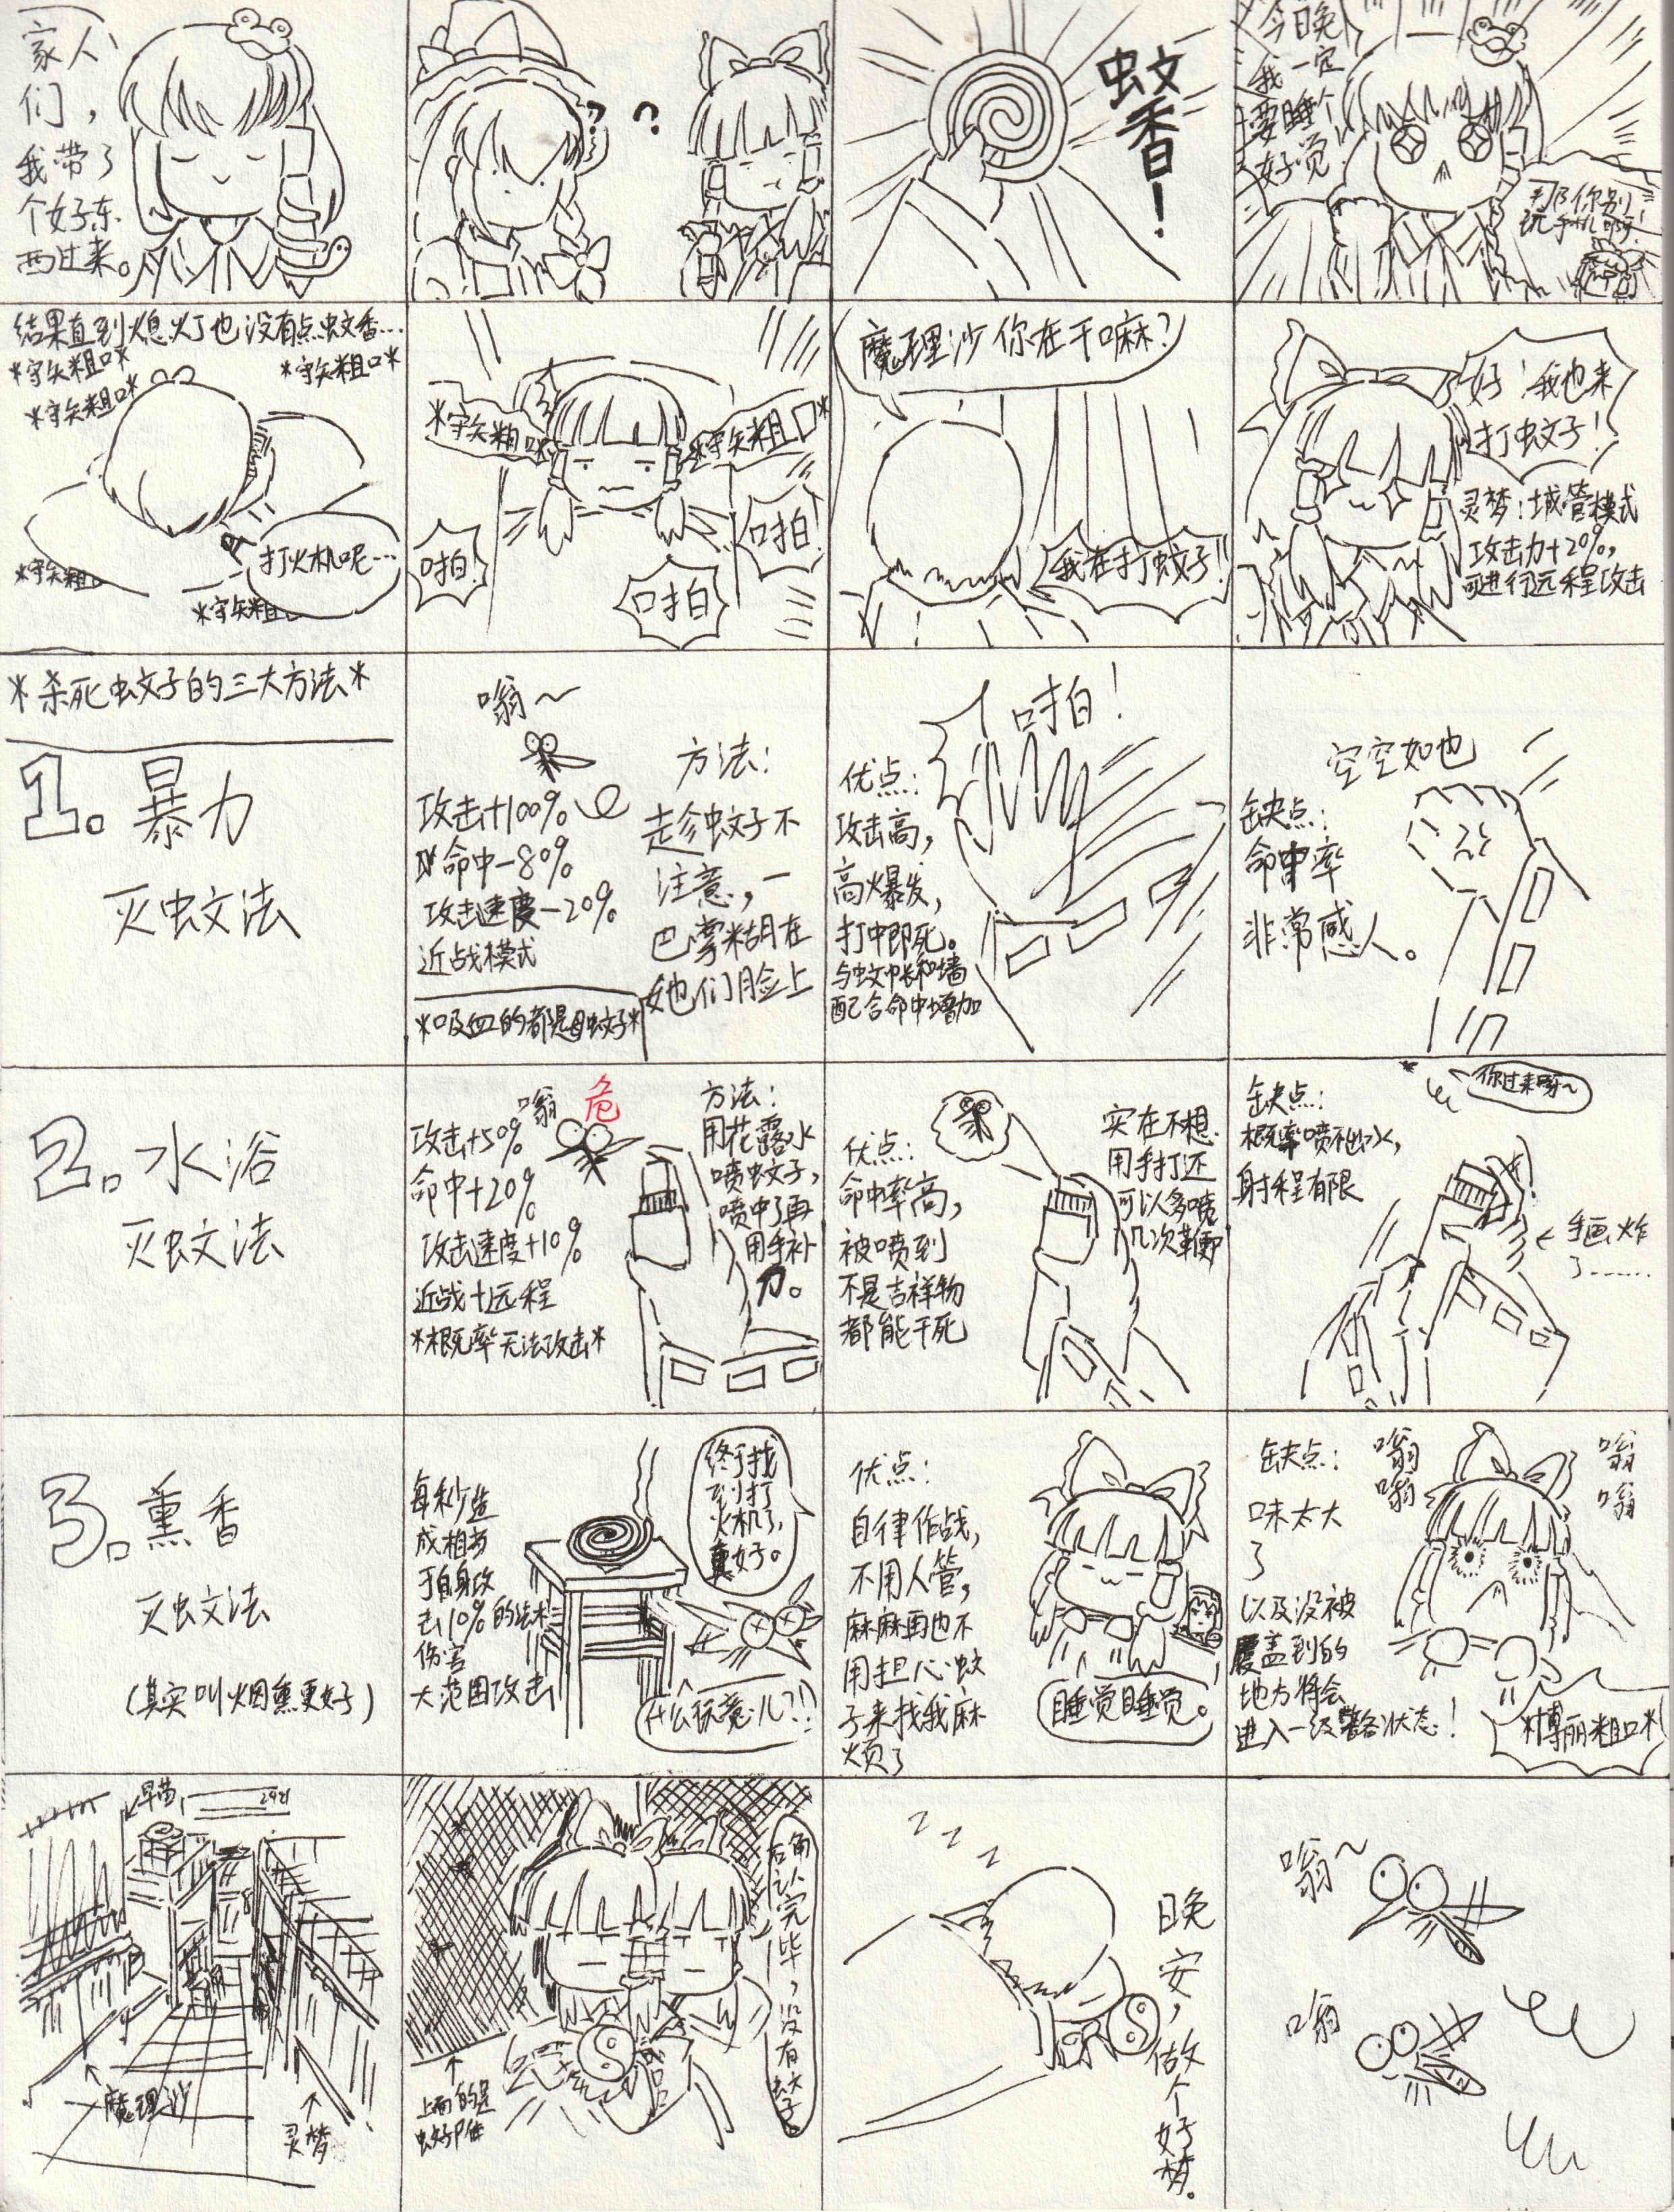 家人
们，
我带了
个好东
西过来。
？
蚊香！
今日晚
我一定
要睡个
好觉！
那你别
玩手机啊！
结果直到熄灯也没有点蚊香…
*守矢粗口*
*守矢粗口*
*守矢粗口*
*守矢粗口
*守矢粗口
打火机呢…
*守矢粗口*
*守矢粗口*
啪！
啪
啪！
魔理沙你在干嘛？
我在打蚊子！！
好！我也来
打蚊子！
灵梦：城管模式
攻击力+20%，
可进行远程攻击
*杀死蚊子的三大方法*
1.暴力
灭蚊法
嗡～
攻击+100%
命中-80%
攻击速度-20%
近战模式
*吸血的都是母蚊子*
方法：
趁蚊子不
注意，一
巴掌糊在
她们脸上
啪！
优点：
攻击高，
高爆发，
打中即死。
与蚊帐和墙
配合命中增加
空空如也
缺点：
命中率
非常感人。
2.水浴
灭蚊法
嗡
危
攻击+50%
命中+20%
攻击速度+10%
近战+远程
*概率无法攻击*
方法：
用花露水
喷蚊子，
喷中了再
用手补
刀。
优点：
命中率高，
被喷到
不是吉祥物
都能干死
实在不想
用手打还
可以多喷
几次鞭
你过来呀～
缺点：
概率喷不出水，
射程有限
←手画炸
了……
3.熏香
灭蚊法
（其实叫烟熏更好）
每秒造
成相当
于自身攻
击10%的法术
伤害
大范围攻击
终于找
到打
火机了，
真好。
什么玩意儿？！！
优点：
自律作战，
不用人管，
麻麻再也不
用担心蚊
子来找我麻
烦了
睡觉睡觉。
缺点：
味太大
了
以及没被
覆盖到的
地方将会
进入一级警备状态！
嗡
嗡
嗡
嗡
*博丽粗口*
早苗
魔理沙
灵梦
上面的是
蚊子阵
右角
确认完
毕，没有
蚊子。
Z Z Z
晚安，做个好梦。
嗡～
嗡